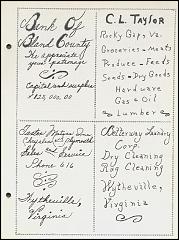 Bank Of
Bland County
We appreciate
your patronage
Capital and surplus
$125,000.00
C. L. Taylor
Rocky Gap, Va.
Groceries - Meats
Produce - Feeds
Seeds - Dry Goods
Hardware
Gas & Oil
Lumber
Motor
Chrysler Plymouth
Sales & Service
Phone 616
Wytheville,
Virginia
Laundry
Corp.
Dry Cleaning
Rug Cleaning
Wytheville,
Virginia